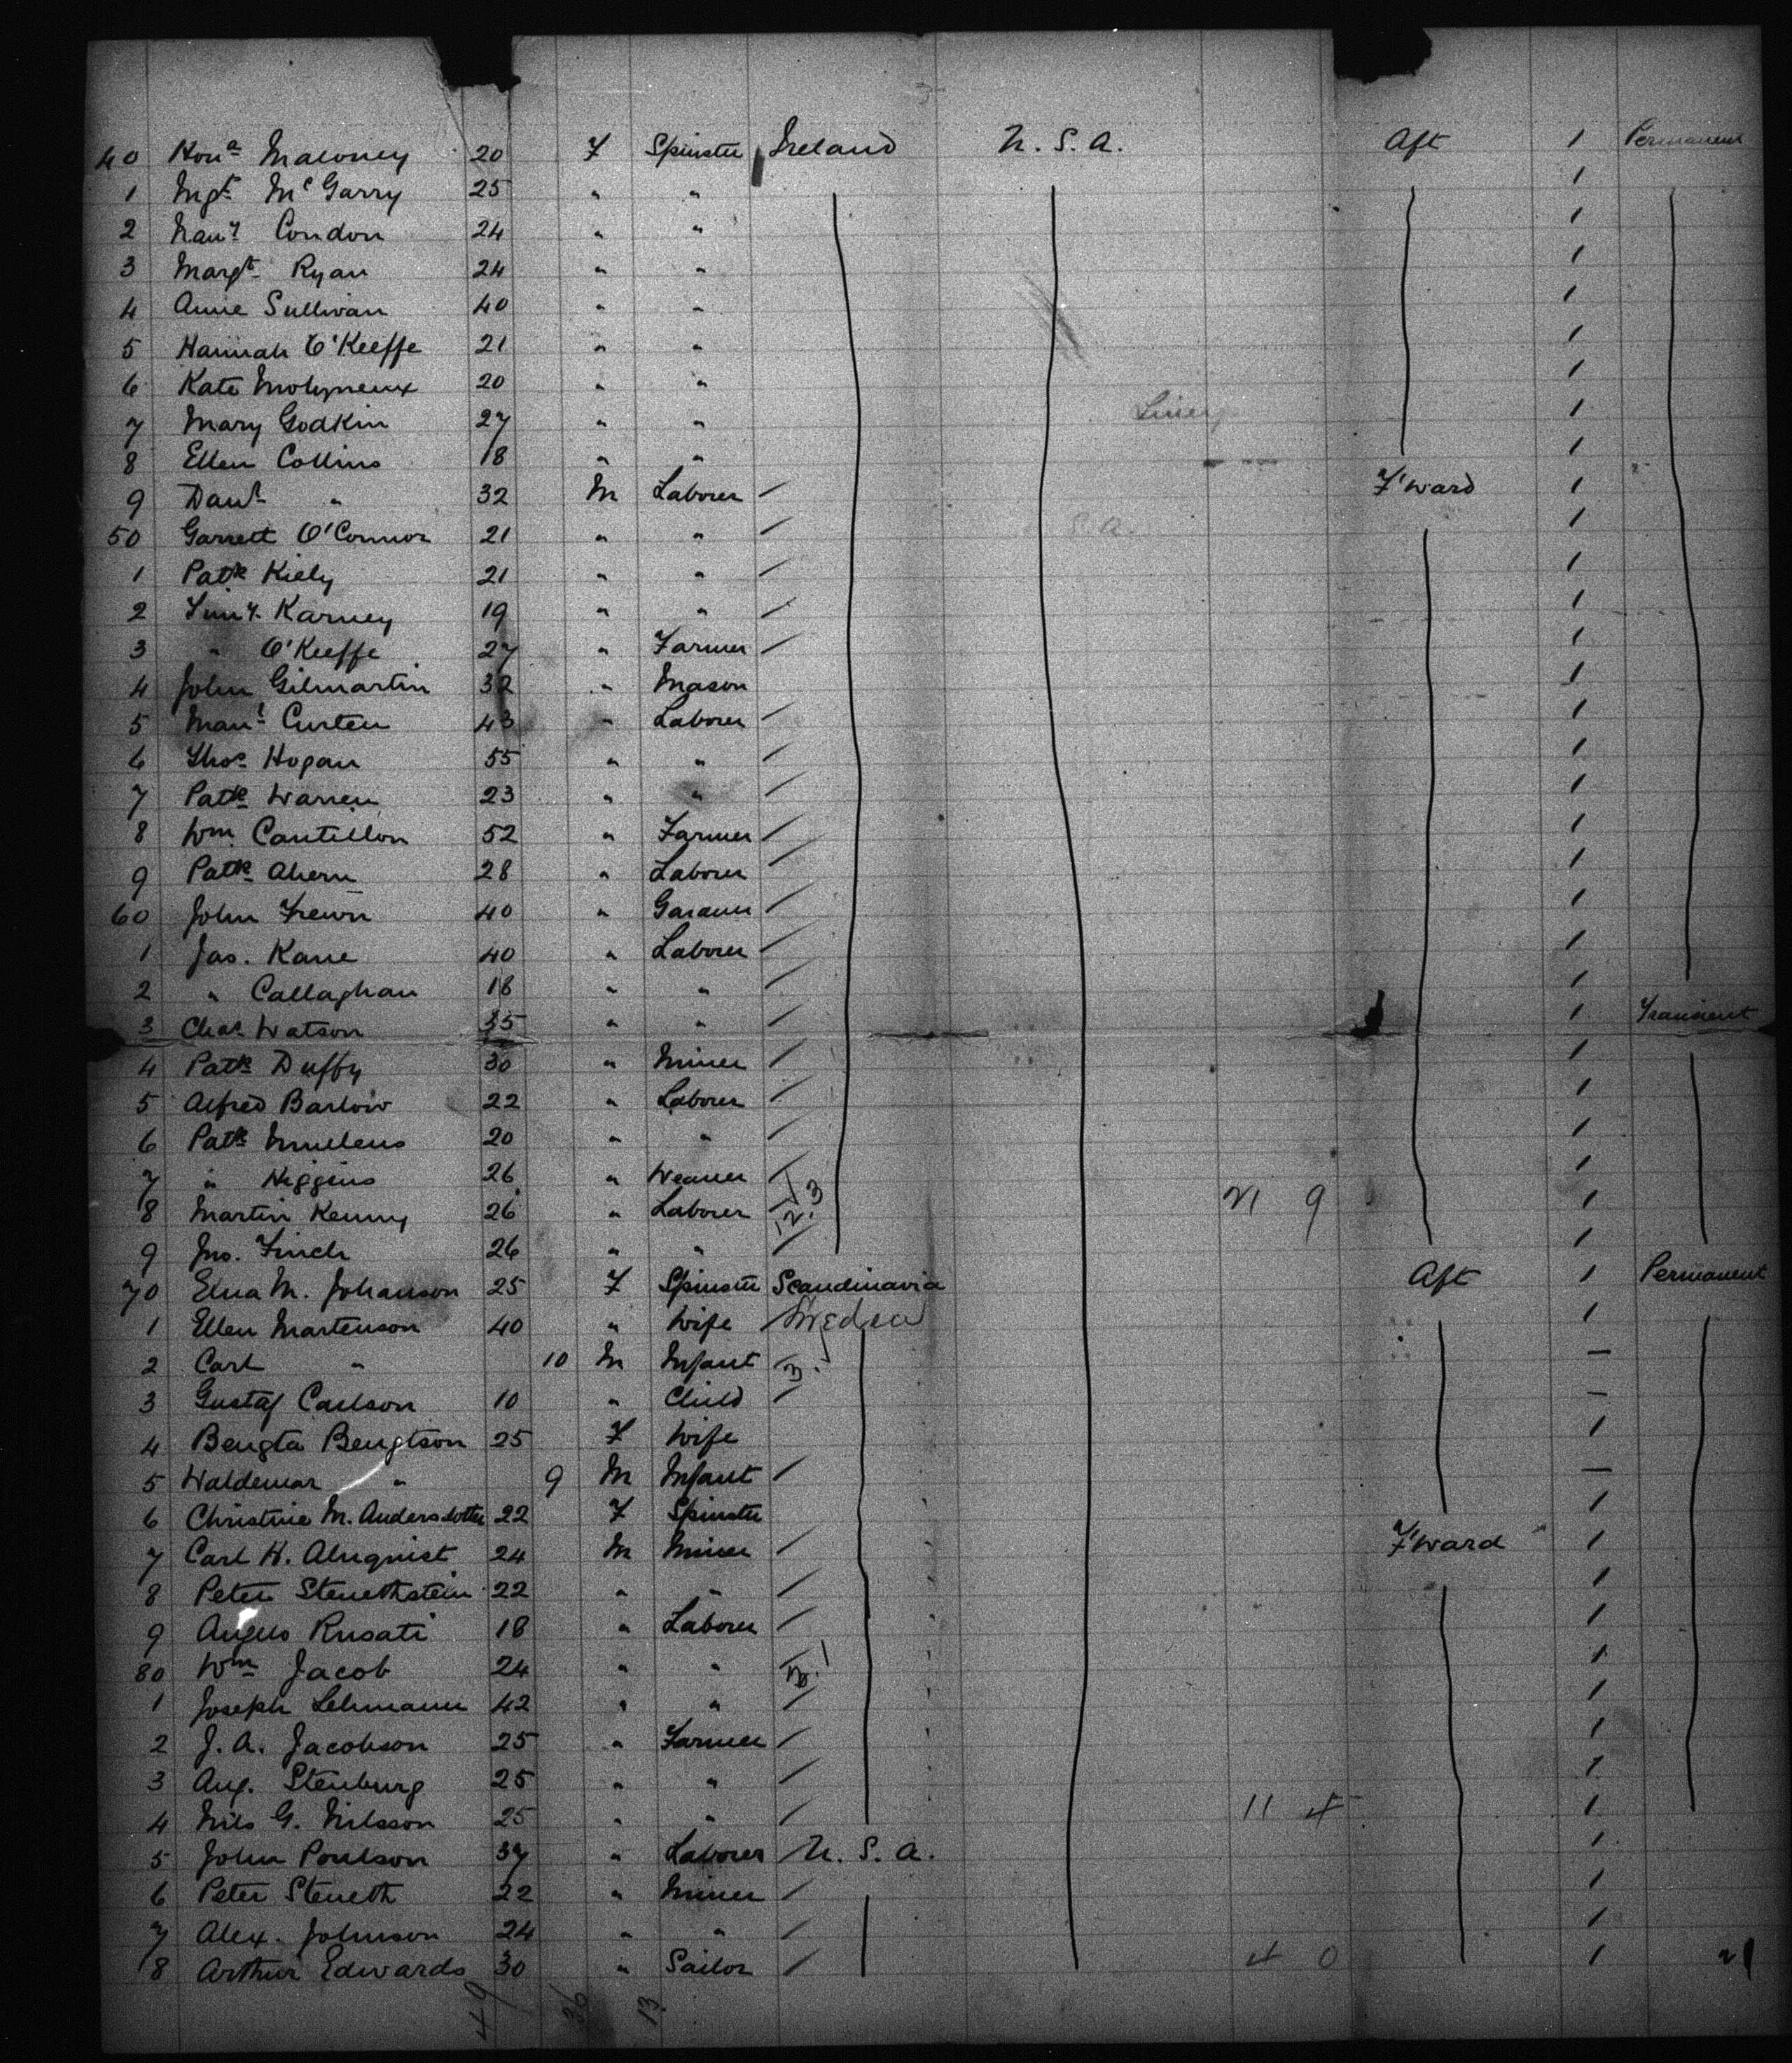 40 Honª Maloney 20 F Spinster Ireland U. S. A. Aft 1 Permanent
1 Mgt McGarry 25 " " 1
2 Hany Condon 24 " " 1
3 Margt Ryan 24 " " 1
4 Annie Sullivan 40 " " 1
5 Hannah O'Keeffe 21 " " 1
6 Kate Molyneux 20 " " 1
7 Mary Godkin 27 " " 1
8 Ellen Collins 18 " " 1
9 Danl " 32 M Laborer / F'ward 1
50 Garrett O'Connor 21 " " / 1
1 Patk Kiely 21 " " / 1
2 Timy. Karney 19 " " / 1
3 " O'Keeffe 27 " Farmer / 1
4 John Gilmartin 32 " Mason 1
5 Curten 43 " Laborer / 1
6 Thos Hogan 55 " " / 1
7 Patk Warren 23 " " / 1
8 Wm. Cantillon 52 " Farmer / 1
9 Patk Ahern 28 " Laborer / 1
60 John Frewn 40 " / 1
1 Jas. Kane 40 " Laborer / 1
2 " Callaghan 18 " " / 1
3 Chas Watson 35 " " / 1 Transient
4 Patk Duffy 30 " Miner / 1
5 Alfred Barlow 22 " Laborer / 1
6 Patk Mullens 20 " " / 1
7 " Higgins 26 " Weaver / 1
8 Martin Kenny 26 " Laborer / 12.3 21 9 1
9 Jno. Finch 26 " " / 1
70 Elna M. Johanson 25 F Spinster Scandinavia Aft 1 Permanent
1 Ellen Martenson 40 " Wife / Sweden 1
2 Carl " 10 M Infant / —
3 Gustaf Carlson 10 " Child / —
4 Bengta Bengtson 25 F Wife 1
5 Waldemar " 9 M Infant / —
6 Christine M. Andersdotter 22 F Spinster 1
7 Carl H. Almquist 24 M Miner / F'ward 1
8 Peter Stenethstein 22 " " / 1
9 Angelo Rusati 18 " Laborer / 1
80 Wm Jacob 24 " " / 1
1 Joseph Lehmann 42 " " / 1
2 J. A. Jacobson 25 " Farmer / 1
3 Aug. Stenburg 25 " " / 1
4 Nils G. Nilsson 25 " " / 11 4 1
5 John Poulson 37 " Laborer / U. S. A. 1
6 Peter Steneth 22 " Miner / 1
7 Alex. Johnson 24 " " / 1
8 Arthur Edwards 30 " Sailor / 4 0 1 21
49 36 13